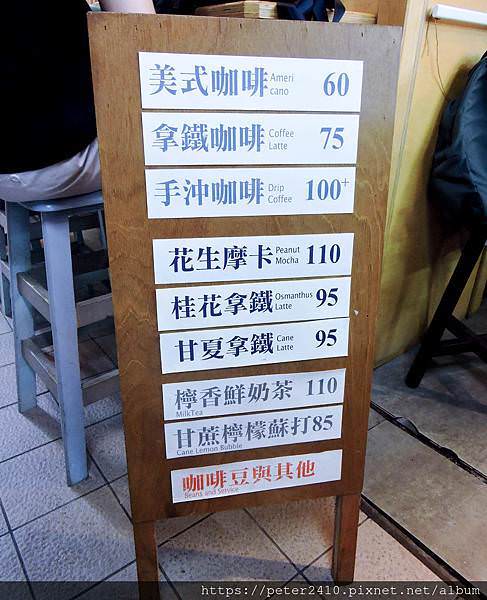 美式咖啡 Ameri cano 60
拿鐵咖啡 Coffee Latte 75
手沖咖啡 Drip Coffee 100+
花生摩卡 Peanut Mocha 110
桂花拿鐵 Osmanthus Latte 95
甘夏拿鐵 Cane Latte 95
檸香鮮奶茶 110
MilkTea
甘蔗檸檬蘇打85
Cane Lemon Bubble
咖啡豆與其他
Beans and Service
https://peter2410.pixnet.net/album